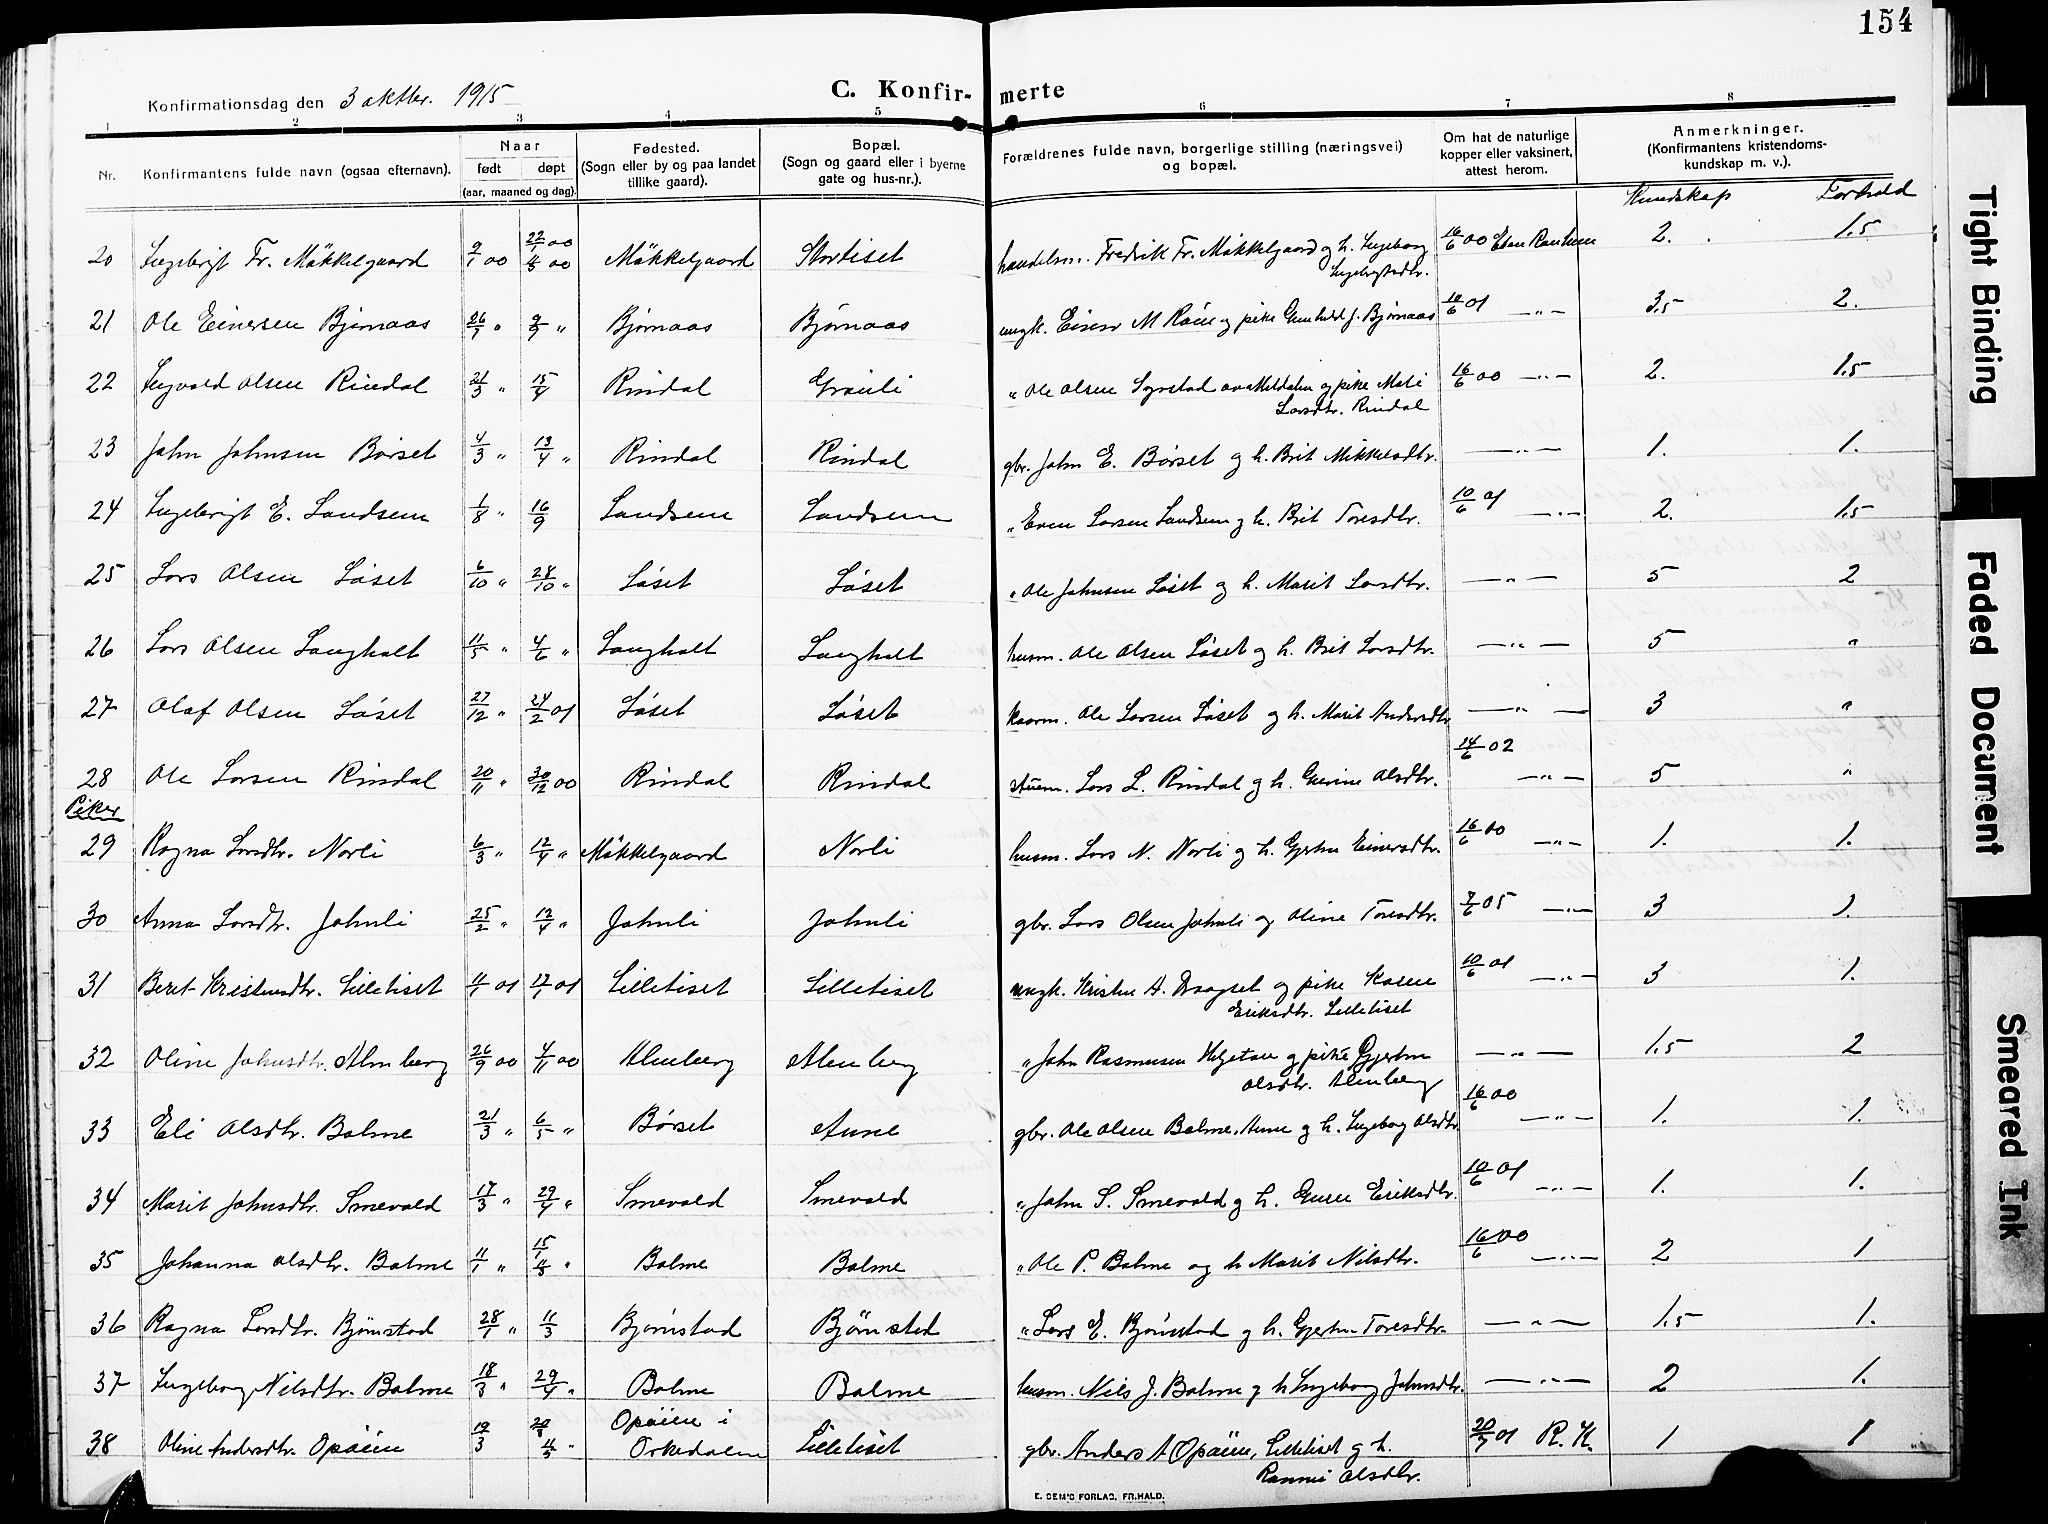 154
Konfirmationsdag den 3 oktbr. 1915
C. Konfir- merte
1 2 3 4 5 6 7 8
Nr.
Konfirmantens fulde navn (ogsaa efternavn).
Naar
født døpt
(aar, maaned og dag).
Fødested.
(Sogn eller by og paa landet
tillike gaard).
Bopæl.
(Sogn og gaard eller i byerne
gate og hus-nr.).
Forældrenes fulde navn, borgerlige stilling (næringsvei)
og bopæl.
Om hat de naturlige
kopper eller vaksinert,
attest herom.
Anmerkninger.
(Konfirmantens kristendoms-
kundskap m. v.).
Kundskap Forhold
20 Ingebrigt Fr. Mökkelgaard 9/1 00 22/1 00 4/3 00 Mökkelgaard Stortiset handelsm. Fredrik Fr. Mökkelgaard og h. Ingeborg 16/6 00 2. 1.5
Ingebrigtsdtr.
21 Ole Einersen Bjørnaas 26/7 " 9/9 " Bjørnaas Bjørnaas ungk. Einer M Røen og pike Gunhild J. Bjørnaas 10/6 01 — " — 3,5 2.
22 Ingvald Olsen Rindal 21/3 " 15/4 Rindal Gråuli " Ole Olsen Syrstad av Meldalen og pike Mali 16/6 00 — " — 2. 1.5
Larsdtr. Rindal
23 John Johnsen Børset 4/3 " 13/4 " Rindal Rindal gbr. John E. Børset og h. Brit Mikkelsdtr. — " — 1. 1.
24 Ingebrigt E. Landsem 1/8 " 16/9 Landsem Landsem " Even Larsen Landsem og h. Brit Toresdtr. 10/6 01 — " — 2. 1.5
25 Lars Olsen Løset 6/10 " 28/10 " Løset Løset " Ole Johnsen Løset og h. Marit Larsdtr. — " — 5 2
26 Lars Olsen Langholt 11/5 " 4/6 " Langholt Langholt husm. Ole Olsen Løset og h. Brit Larsdtr. — " — 5 "
27 Olaf Olsen Løset 27/12 " 24/2 01 Løset Løset kaarm. Ole Larsen Løset og h. Marit Andersdtr — " — 3 "
28 Ole Larsen Rindal 20/11 " 30/12 00 Rindal Rindal Lars L. Rindal og h. Olsdtr. 14/6 02 — " — 5 "
Piker
29 Ragna Larsdtr. Norli 6/3 " 12/4 " Mökkelgaard Norli husm. Lars N. Norli og h. Gjertru Einersdtr. 16/6 00 — " — 1. 1.
30 Anna Larsdtr. Johnli 25/2 " 12/4 " Johnli Johnli gbr. Lars Olsen Johnli og Oline Toresdtr. 7/6 05 — " — 3 1.
31 Beret Kristensdtr. Lilletiset 11/1 01 17/1 01 Lilletiset Lilletiset ungk. Kristen A. Dragset og pike Karen 10/6 01 — " — 3 1.
Eriksdtr. Lilletiset
32 Oline Johnsdtr. Almberg 26/9 00 4/11 00 Almberg Almberg " John Rasmussen Helgetun og pike Gjertru — " — 1.5 2
Olsdtr. Almberg
33 Eli Olsdtr. Bolme 21/3 " 6/5 " Børset Aune gbr. Ole Olsen Bolme, Aune og h. Ingeborg Olsdtr 16/6 00 — " — 1. 1.
34 Marit Johnsdtr. Smevold 17/3 " 29/4 " Smevold Smevold " John S. Smevold og h. Guru Eriksdtr. 10/6 01 — " — 1. 1.
35 Johanna Olsdtr. Bolme 11/1 " 15/1 11/3 " Bolme Bolme " Ole P. Bolme og h Marit Nilsdtr. 16/6 00 — " — 2 1
36 Ragna Larsdtr. Bjørnstad 28/1 " 11/3 Bjørnstad Bjørnstad " Lars E. Bjørnstad og h. Gjertru Toresdtr. — " — 1.5 1.
37 Ingeborg Nilsdtr. Bolme 18/3 " 29/4 " Bolme Bolme husm. Nils J. Bolme og h Ingeborg Johnsdtr. — " — 2 1.
38 Oline Andersdtr. Opøien 19/3 11/5 " Opøien i Orkedalen Lilletiset gbr. Anders A Opøien, Lilletiset og h. 20/7 01 R. K. 1 1
Olsdtr.
E. SEM'S FORLAG, FR.HALD.
Tight Binding
Faded Document
Smeared Ink